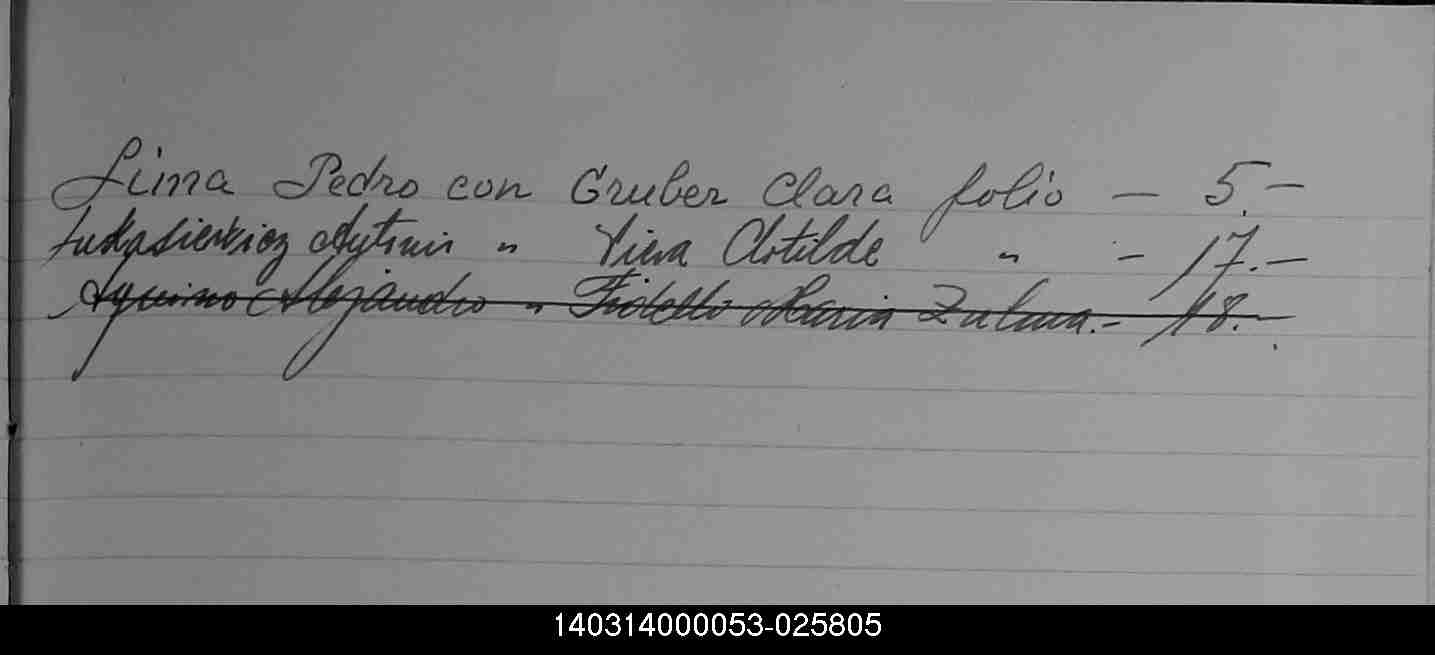 Lima Pedro con Gruber Clara folio — 5.—
Lukasievicz " Viera Clotilde " — 17.—
Aquino Alejandro " Fidello Maria Zulma.— 18.—
140314000053-025805